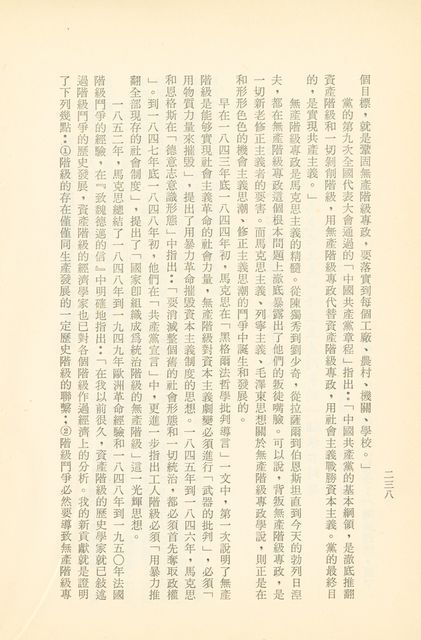 二三八
個目標，就是鞏固無產階級專政，要落實到每個工廠、農村、機關、學校。」
黨的第九次全國代表大會通過的「中國共產黨章程」指出：「中國共產黨的基本綱領，是澈底推翻
資產階級和一切剝削階級，用無產階級專政代替資產階級專政，用社會主義戰勝資本主義。黨的最終目
的，是實現共產主義。」
無產階級專政是馬克思主義的精髓。從陳獨秀到劉少奇，從拉薩爾到伯恩斯坦直到今天的勃列日涅
夫，都在無產階級專政這個根本問題上澈底暴露出了他們的叛徒嘴臉。可以說，背叛無產階級專政，是
一切新老修正主義者的要害。而馬克思主義、列寧主義、毛澤東思想關於無產階級專政學說，則正是在
和形形色色的機會主義思潮、修正主義思潮的鬥爭中誕生和發展的。
早在一八四三年底一八四四年初，馬克思在「黑格爾法哲學批判導言」一文中，第一次說明了無產
階級是能夠實現社會主義革命的社會力量，無產階級對資本主義劇變必須進行「武器的批判」，必須「
用物質力量來摧毀」，提出了用暴力革命摧毀資本主義制度的思想。一八四五年到一八四六年，馬克思
和恩格斯在「德意志意識形態」中指出：「要消滅整個舊的社會形態和一切統治，都必須首先奪取政權
」。到一八四七年底一八四八年初，他們在「共產黨宣言」中，更進一步指出工人階級必須「用暴力推
翻全部現存的社會制度」，提出了「國家卽組織成爲統治階級的無產階級」這一光輝思想。
一八五二年，馬克思總結了一八四八年到一九四九年歐洲革命經驗和一八四八年到一九五〇年法國
階級鬥爭的經驗，在『致魏德邁的信』中明確地指出：「在我以前很久，資產階級的歷史學家就已敍述
過階級鬥爭的歷史發展，資產階級的經濟學家也已對各個階級作過經濟上的分析。我的新貢獻就是證明
了下列幾點：①階級的存在僅僅同生產發展的一定歷史階級的聯繫；②階級鬥爭必然要導致無產階級專